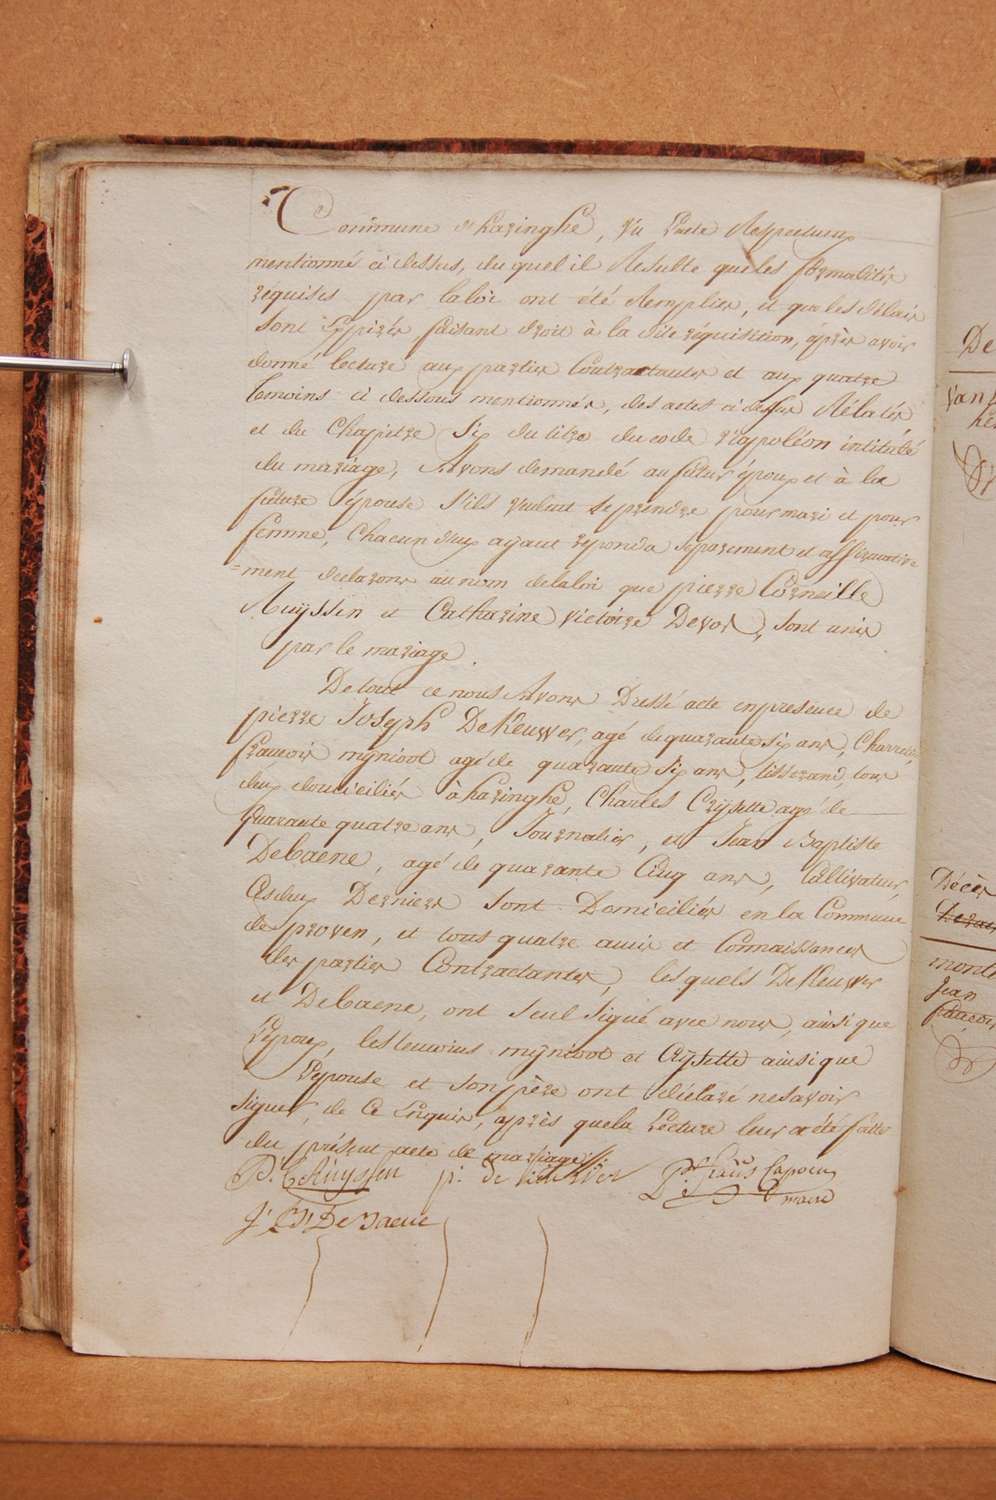 Commune d'haringhe, vu l'acte Respectueux
mentionné ci dessus, du quel il Resulte que les formalités
requises par la loi ont été Remplies, et que les délais
sont Expirés faisant droit à la dite réquisition, après avoir
donné lecture aux parties Contractantes et aux quatre
temoins ci dessous mentionnés, des actes ci dessus Rélatés
et du Chapitre Six du titre du code Napoléon intitulé
du mariage, Avons demandé au futur époux et à la
future épouse s'ils veulent se prendre pour mari et pour
femme, Chacun d'eux ayant repondu séparement et affirmative
=ment declarons au nom de la loi que pierre Corneille
Ruyssen et Catharine victoire Devos, sont unis
par le mariage.
De tout ce nous Avons Dressé acte en presence de
pierre Joseph DeKeuwer, agé de quarante six ans, Charron,
francois mijnioot agé de quarante six ans, tisserand, tous
deux domiciliés à haringhe, Charles Crijsette agé de
quarante quatre ans, Journalier, et Jean Baptiste
DeCaene, agé de quarante Cinq ans, Cultivateur,
Ces deux Derniers sont Domiciliés en la Commune
de proven, et tous quatre amis et Connaissances
des parties Contractantes, les quels DeKeuwer
et DeCaene, ont seul signé avec nous, ainsi que
l'époux, les temoins mijnioot et Crijsette ainsi que
l'epouse et son père ont déclaré ne savoir
signer, de Ce Enquis, après que la Lecture leur a été faite
du présent acte de mariage
P. C. Ruyssen p. J. de
Capoen
maire
J. B. De
De
van
Décès
Jean
francois